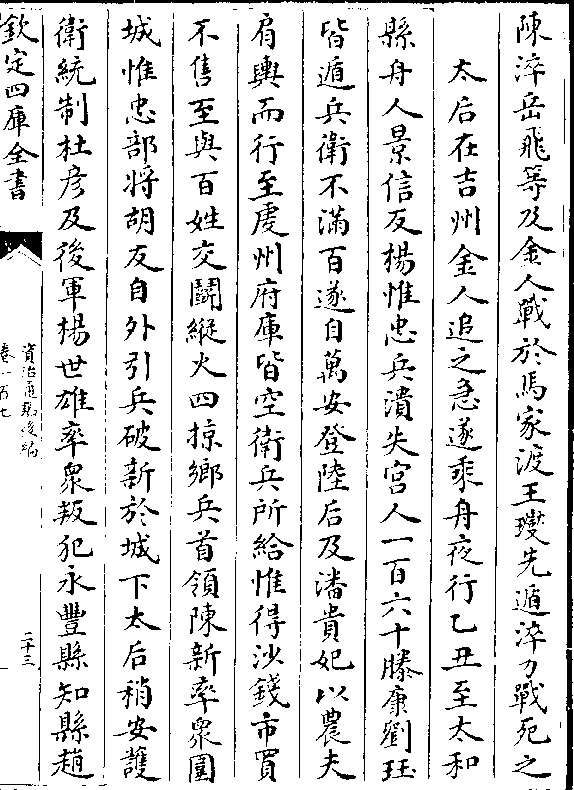 陳淬岳飛等及金人戰於馬家渡王𤫉先遁淬力戰死之
太后在吉州金人追之急遂乘舟夜行乙丑至太和
縣舟人景信反楊惟忠兵潰失宫人一百六十滕康劉珏
皆遁兵衛不滿百遂自萬安登陸后及潘貴妃以農夫
肩輿而行至虔州府庫皆空衛兵所給惟得沙錢市買
不售至與百姓交鬭縱火四掠鄉兵首領陳新率衆圍
城惟忠部將胡友自外引兵破新於城下太后稍安護
衛統制杜彦及後軍楊世雄率衆叛犯永豐縣知縣趙
欽定四庫全書
資治通鑑後編
卷一百七
二十三